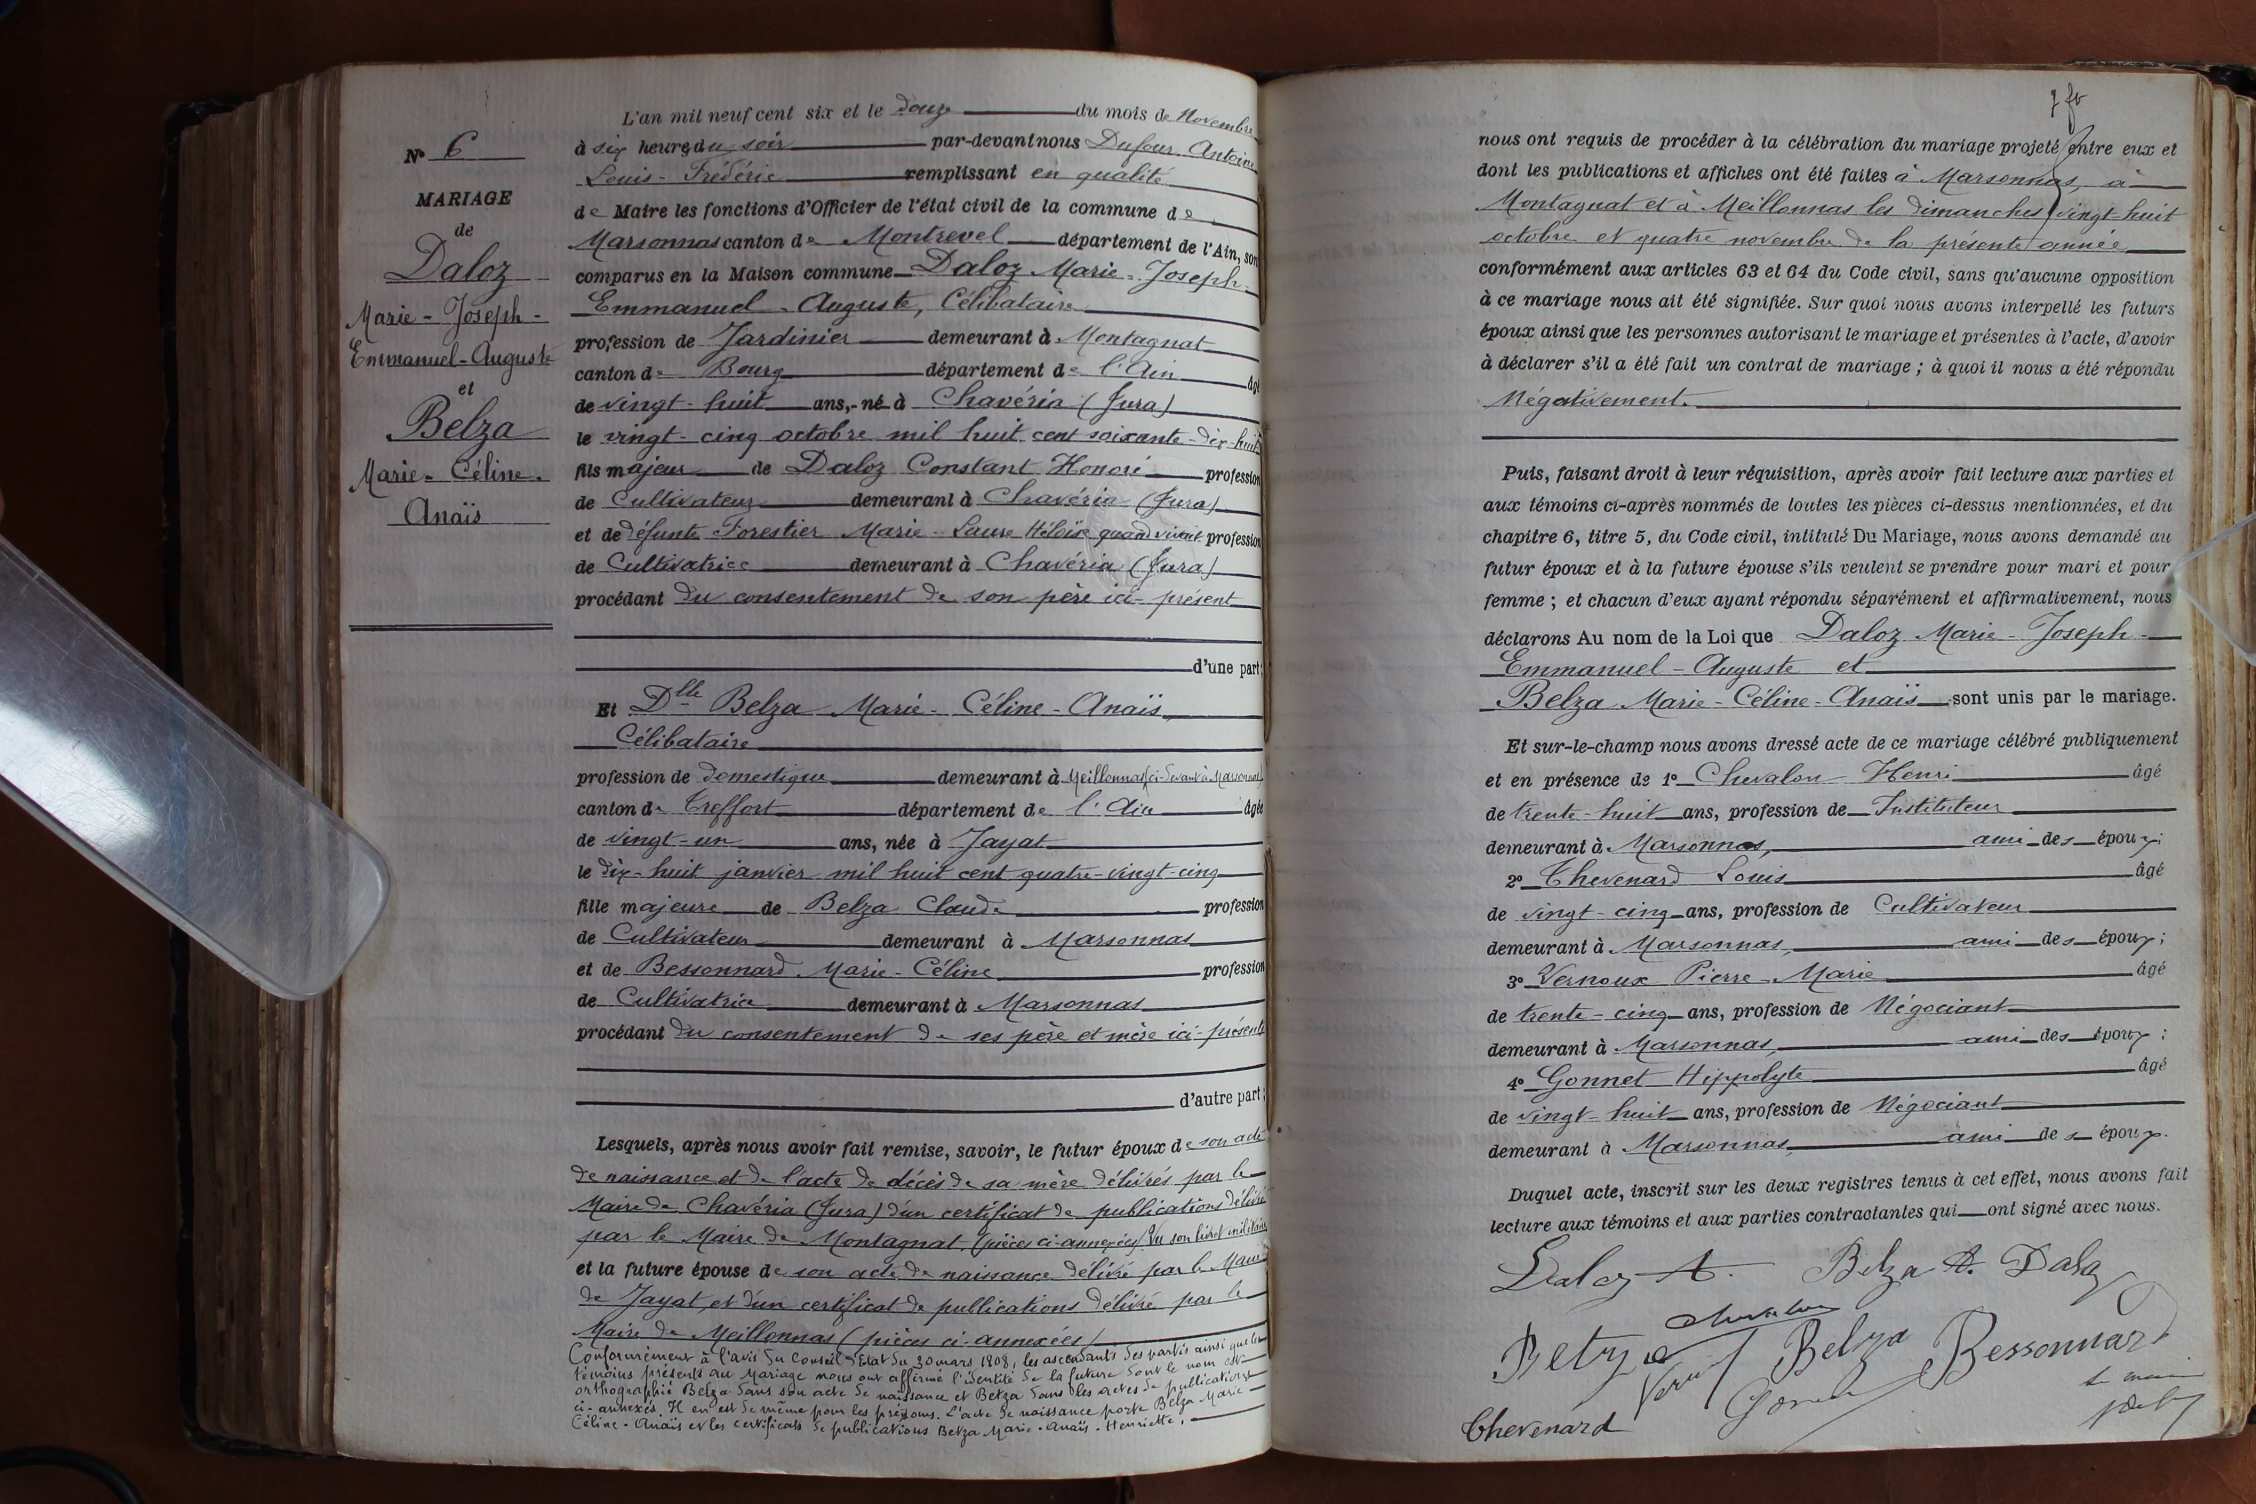 N° 6
MARIAGE
de
Daloz
Marie - Joseph -
Emmanuel - Auguste
et
Belza
Marie - Céline -
Anaïs
L'an mil neuf cent six et le douze du mois de Novembre
à six heures du soir par-devant nous Dufour Antoine
Louis - Frédéric remplissant en qualité
de Maire les fonctions d'Officier de l'état civil de la commune de
Marsonnas canton de Montrevel département de l'Ain, sont
comparus en la Maison commune Daloz Marie - Joseph -
Emmanuel - Auguste, Célibataire
profession de Jardinier demeurant à Montagnat
canton de Bourg département de l'Ain âgé
de vingt - huit ans, né à Chavéria (Jura)
le vingt - cinq octobre mil huit cent soixante - dix - huit
fils majeur de Daloz Constant Honoré profession
de Cultivateur demeurant à Chavéria (Jura)
et de défunte Forestier Marie - Laure Héloïse quand vivait profession
de Cultivatrice demeurant à Chavéria (Jura)
procédant du consentement de son père ici - présent
d'une part;
Et Dlle Belza Marie - Céline - Anaïs,
Célibataire
profession de domestique demeurant à Meillonnas (ci-devant à Marsonnas)
canton de Treffort département de l'Ain âgée
de vingt - un ans, née à Jayat
le dix - huit janvier mil huit cent quatre - vingt - cinq
fille majeure de Belza Claude profession
de Cultivateur demeurant à Marsonnas
et de Bessonnard Marie - Céline profession
de Cultivatrice demeurant à Marsonnas
procédant du consentement de ses père et mère ici - présents
d'autre part;
Lesquels, après nous avoir fait remise, savoir, le futur époux de son acte
de naissance et de l'acte de décès de sa mère délivrés par le
Maire de Chavéria (Jura) d'un certificat de publications délivré
par le Maire de Montagnat, (pièces ci-annexées) Vu son livret militaire
et la future épouse de son acte de naissance délivré par le Maire
de Jayat et d'un certificat de publications délivré par le
Maire de Meillonnas (pièces ci-annexées)
Conformément à l'avis du Conseil d'Etat du 30 mars 1808, les ascendants des partis ainsi que les
témoins présents au Mariage nous ont affirmé l'identité de la future dont le nom est
orthographié Belza dans son acte de naissance et Betza dans les actes de publications
ci-annexés. Il en est de même pour les prénoms. L'acte de naissance porte Belza Marie
Céline - Anaïs et les certificats de publications Betza Marie - Anaïs - Henriette.
nous ont requis de procéder à la célébration du mariage projeté entre eux et
dont les publications et affiches ont été faites à Marsonnas, à
Montagnat et à Meillonnas les dimanches vingt - huit
octobre et quatre novembre de la présente année
conformément aux articles 63 et 64 du Code civil, sans qu'aucune opposition
à ce mariage nous ait été signifiée. Sur quoi nous avons interpellé les futurs
époux ainsi que les personnes autorisant le mariage et présentes à l'acte, d'avoir
à déclarer s'il a été fait un contrat de mariage ; à quoi il nous a été répondu
Négativement.
Puis, faisant droit à leur réquisition, après avoir fait lecture aux parties et
aux témoins ci-après nommés de toutes les pièces ci-dessus mentionnées, et du
chapitre 6, titre 5, du Code civil, intitulé Du Mariage, nous avons demandé au
futur époux et à la future épouse s'ils veulent se prendre pour mari et pour
femme ; et chacun d'eux ayant répondu séparément et affirmativement, nous
déclarons Au nom de la Loi que Daloz Marie - Joseph -
Emmanuel - Auguste et
Belza Marie - Céline - Anaïs sont unis par le mariage.
Et sur-le-champ nous avons dressé acte de ce mariage célébré publiquement
et en présence de 1° Chevalon Henri âgé
de trente - huit ans, profession de Instituteur
demeurant à Marsonnas, ami des époux;
2° Chevenard Louis âgé
de vingt - cinq ans, profession de Cultivateur
demeurant à Marsonnas, ami des époux;
3° Vernoux Pierre - Marie âgé
de trente - cinq ans, profession de Négociant
demeurant à Marsonnas, ami des époux;
4° Gonnet Hippolyte âgé
de vingt - huit ans, profession de Négociant
demeurant à Marsonnas, ami des époux.
Duquel acte, inscrit sur les deux registres tenus à cet effet, nous avons fait
lecture aux témoins et aux parties contractantes qui ont signé avec nous.
Daloz A. Belza A. Daloz
Chevalon
Betza Belza Bessonnard
Gonnet
Chevenard